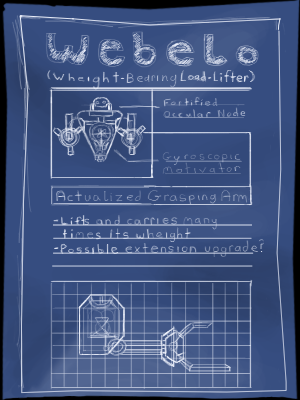 WeBeLo
(Wheight-Bearing Load-Lifter)
Fortified
Occular Node
Gyroscopic
motivator
Actualized Grasping Arm
-Lifts and carries many
times its wheight
-Possible extension upgrade?